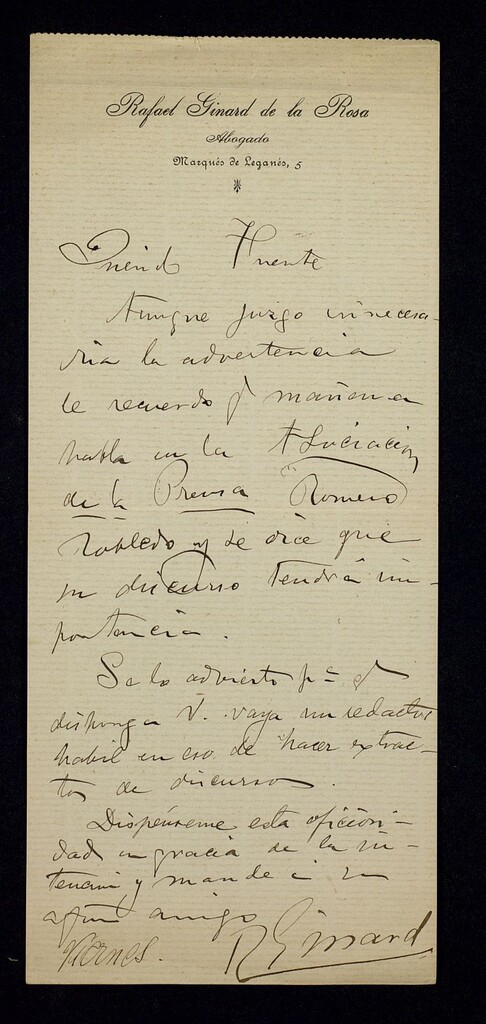 Rafael Ginard de la Rosa
Abogado
Marqués de Leganés, 5
Querido Fuente
Aunque juzgo innecesa-
ria la advertencia
le recuerdo q mañana
habla en la Asociación
de la Prensa Romero
Robledo y se dice que
su discurso tendrá im-
portancia.
Se lo advierto pª q
disponga V. vaya un redactor
habil en eso de hacer extrac-
tos de discursos.
Dispénseme esta oficiosi-
dad en gracia de la in-
tencion y mande a su
afmo amigo
Viernes. R Ginard